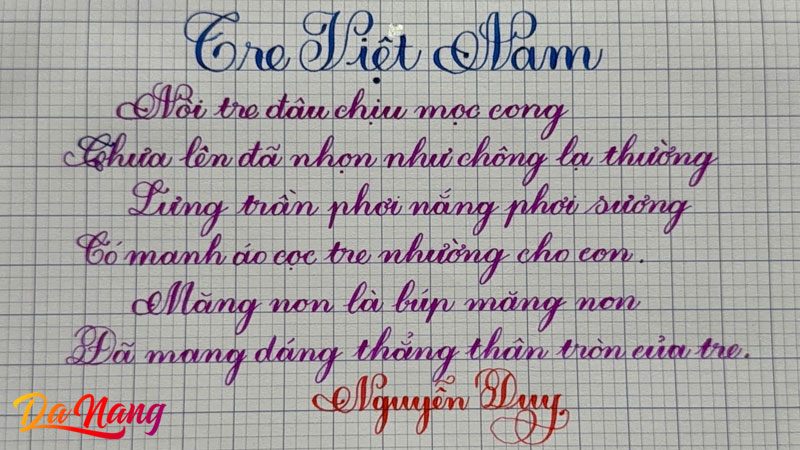 Tre Việt Nam
Nòi tre đâu chịu mọc cong
Chưa lên đã nhọn như chông lạ thường
Lưng trần phơi nắng phơi sương
Có manh áo cọc tre nhường cho con.
Măng non là búp măng non
Đã mang dáng thẳng thân tròn của tre.
Nguyễn Duy
Da Nang